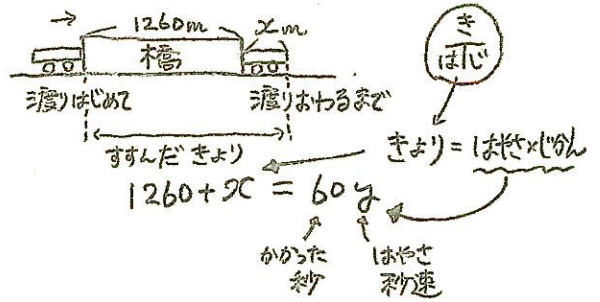 1260m
xm
橋
渡りはじめて
渡りおわるまで
すすんだきょり
き
はじ
きょり=はやさ×じかん
1260+x=60y
かかった
秒
はやさ
秒速